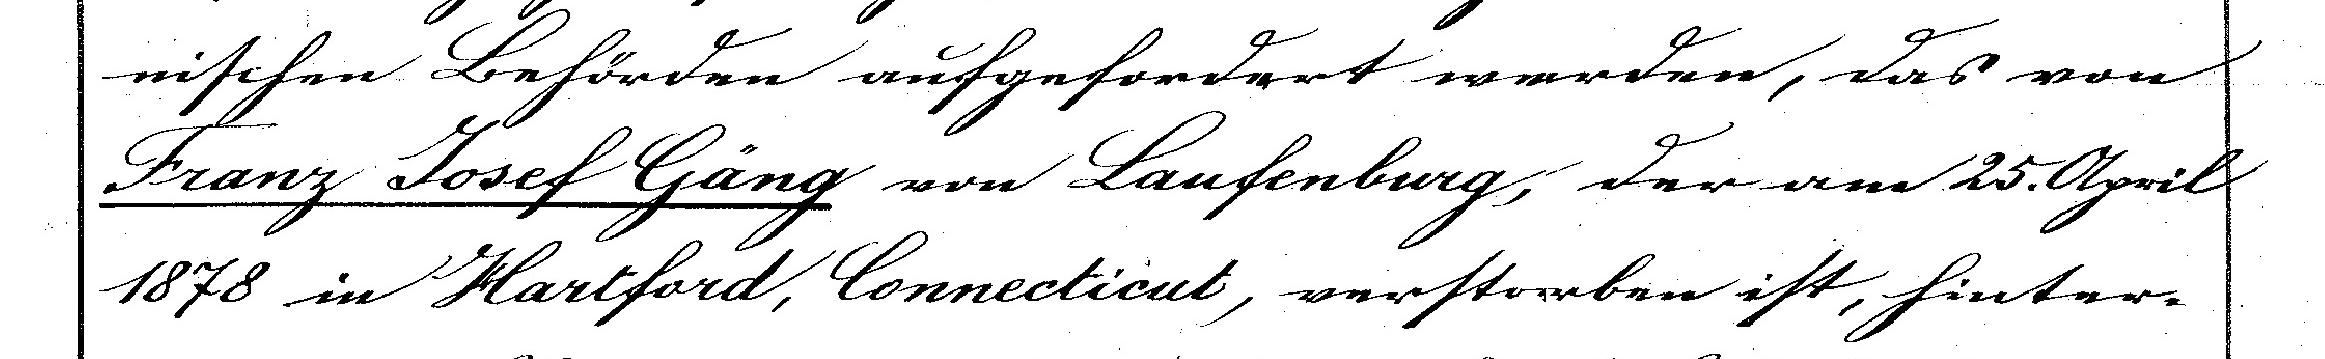 nischen Behörden aufgefordert werden, das von
Franz Josef Gäng von Laufenburg, der am 25. April
1878 in Hartford, Connecticut, verstorben ist, hinter-